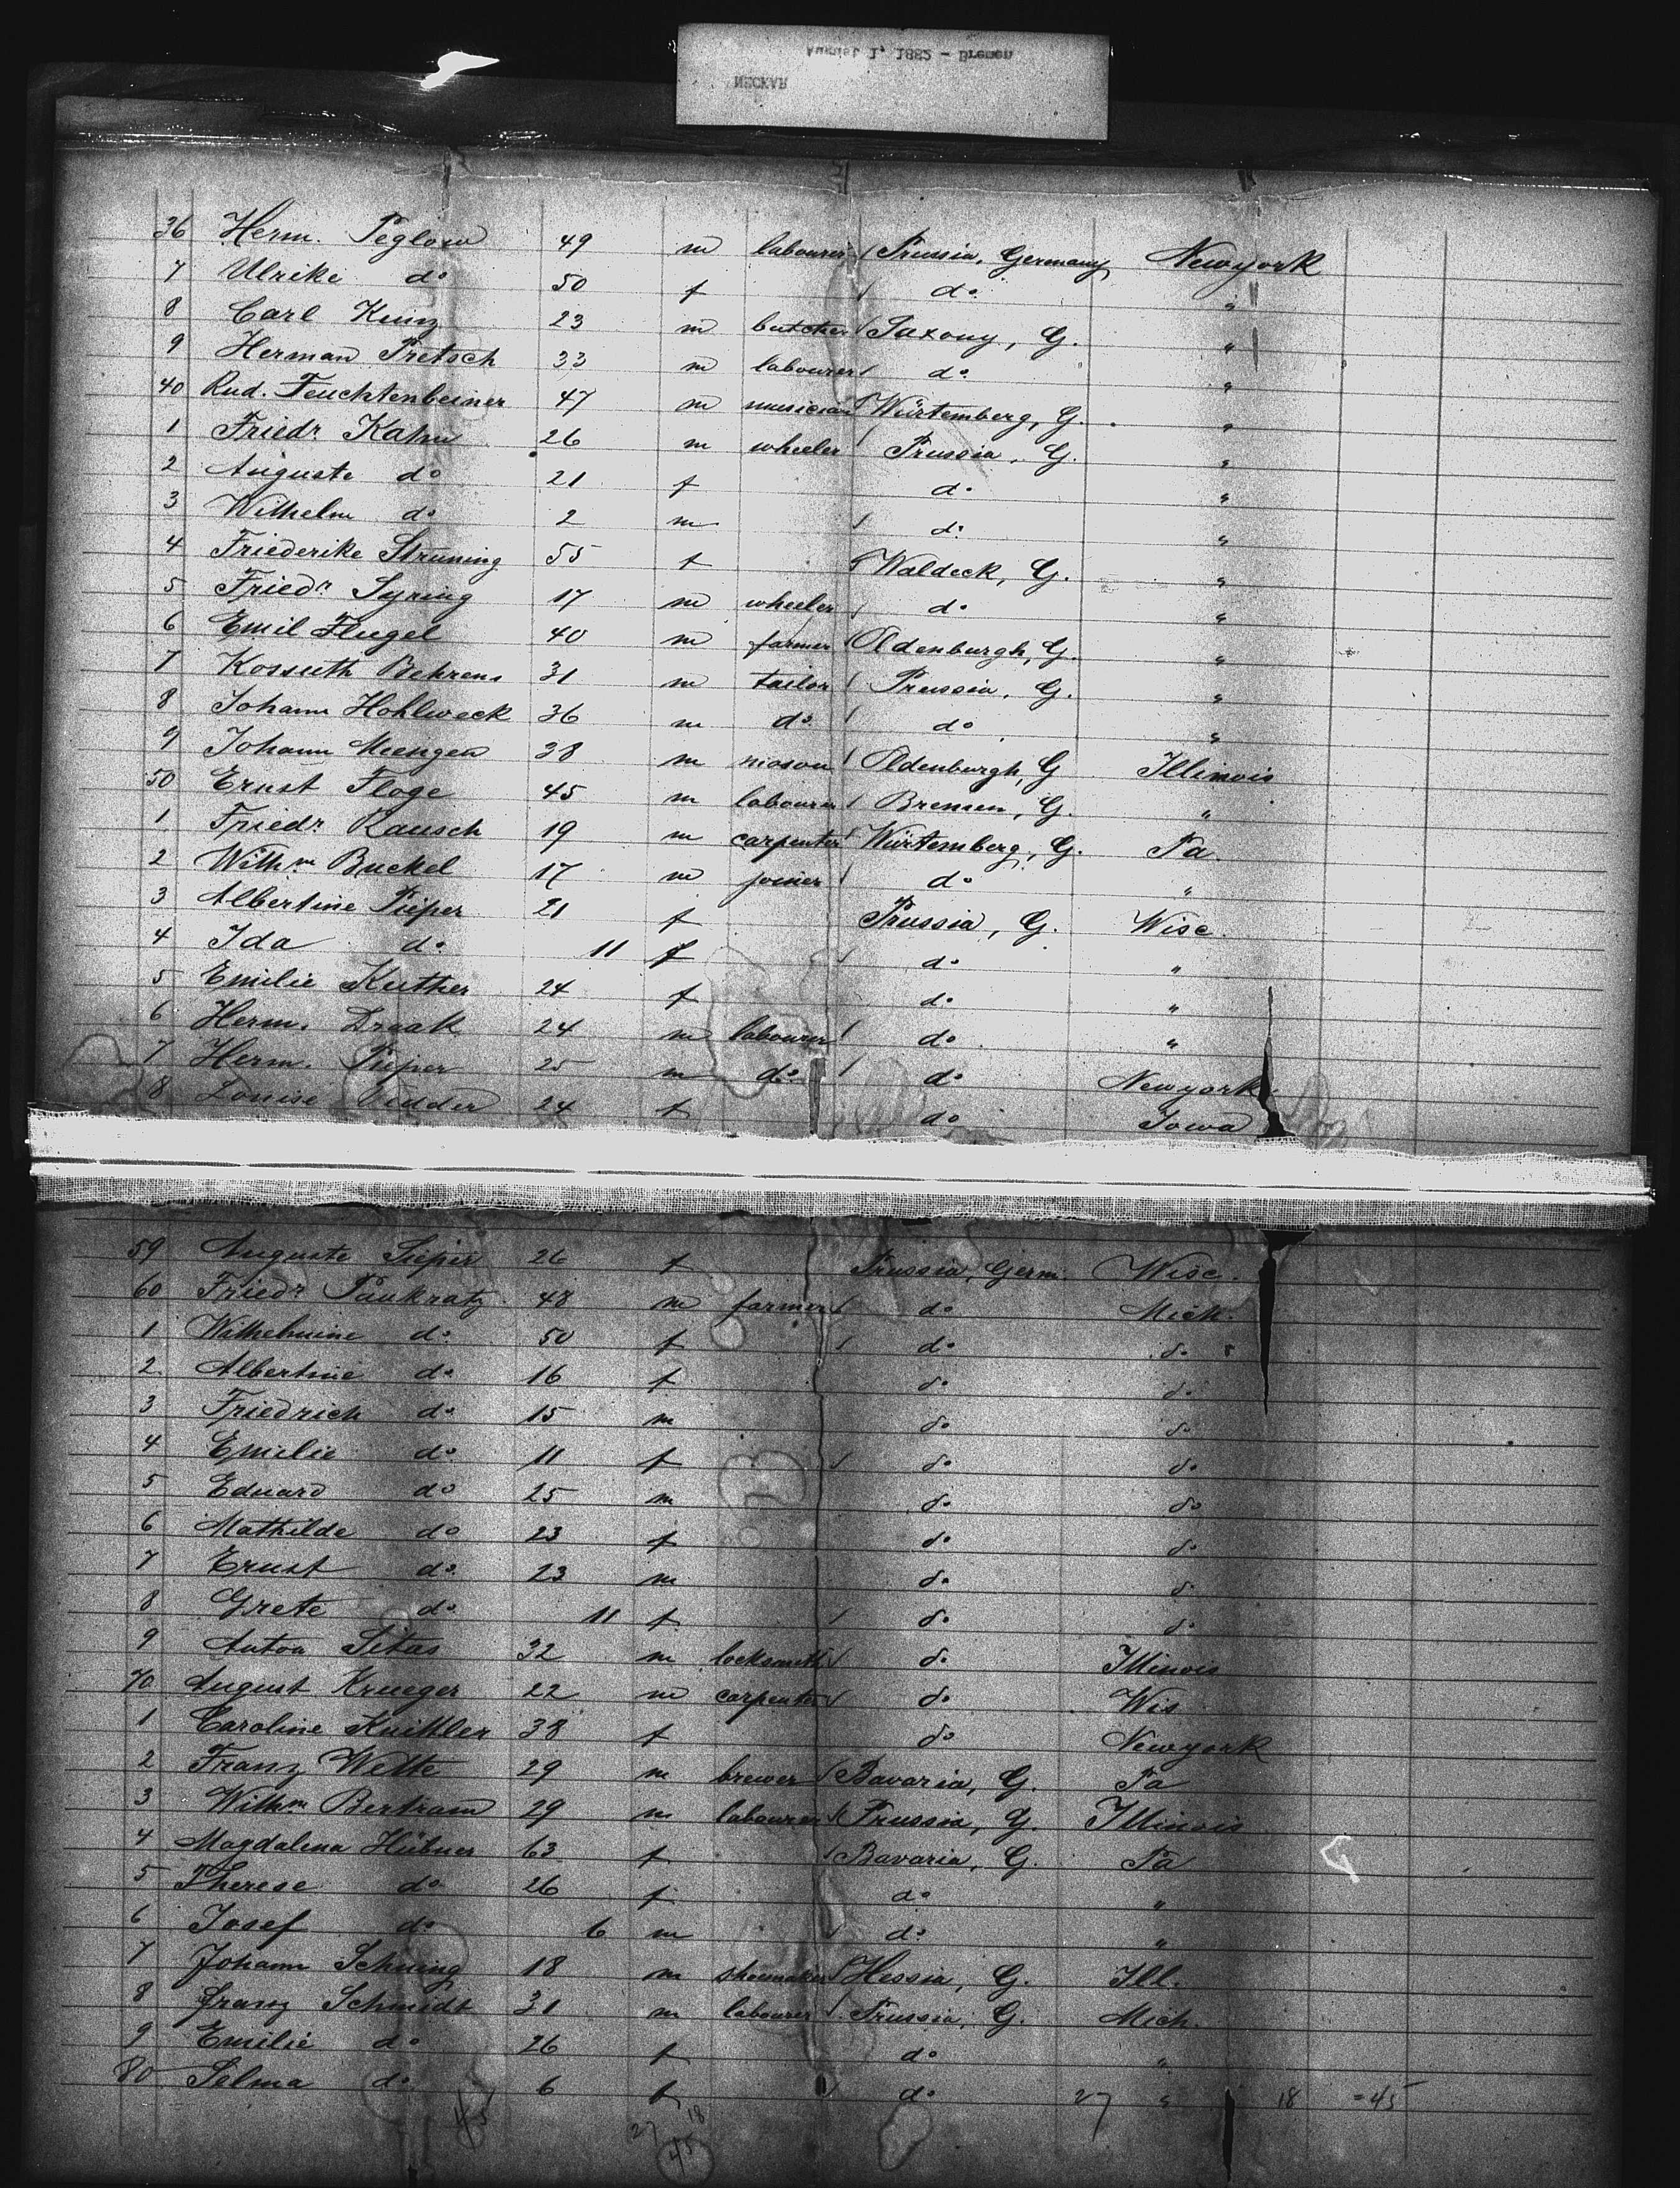 August 1, 1882 - Bremen
NECKAR
36 Herm. Peglow 49 m labourer Prussia, Germany Newyork
7 Ulrike do 50 f do "
8 Carl Kunz 23 m butcher Saxony, G. "
9 Herman Pretsch 33 m labourer do "
40 Rud. Feuchtenbeiner 47 m musician Würtemberg, G. "
1 Friedr Kahn 26 m wheeler Prussia, G. "
2 Auguste do 21 f do "
3 Wilhelm do 2 m do "
4 Friederike Struning 55 f Waldeck, G. "
5 Friedr Syring 17 m wheeler do "
6 Emil Flugel 40 m farmer Oldenburgh, G. "
7 Kossuth Behrens 31 m tailor Prussia, G. "
8 Johann Hohlweck 36 m do do "
9 Johann Mengen 38 m mason Oldenburgh, G Illinois
50 Ernst Floge 45 m labourer Bremen, G. "
1 Friedr Rausch 19 m carpenter Würtemberg, G. Pa.
2 Wilhm Buckel 17 m joiner do "
3 Albertine Pieper 21 f Prussia, G. Wisc.
4 Ida do 11 f do "
5 Emilie Kuther 24 f do "
6 Herm. Draak 24 m labourer do "
7 Herm. Pieper 25 m do do Newyork
8 Louise 24 f do Iowa
59 Auguste Pieper 26 f Prussia, Germ. Wisc.
60 Friedr Pankratz 48 m farmer do Mich.
1 Wilhelmine do 50 f do do
2 Albertine do 16 f do do
3 Friedrich do 15 m do do
4 Emilie do 11 f do do
5 Eduard do 25 m do do
6 Mathilde do 23 f do do
7 Ernst do 23 m do do
8 Grete do 11 f do do
9 Anton Titas 32 m locksmith do Illinois
70 August Krueger 22 m carpenter do Wis
1 Caroline Knittler 38 f do Newyork
2 Franz Wette 29 m brewer Bavaria, G. Pa
3 Wilhm Bertram 29 m labourer Prussia, G. Illinois
4 Magdalena Hübner 63 f Bavaria, G. Pa
5 Therese do 26 f do "
6 Josef do 6 m do "
7 Johann Schuing 18 m shoemaker Hessia, G. Ill.
8 Franz Schmidt 31 m labourer Prussia, G. Mich.
9 Emilie do 26 f do "
80 Selma do 6 f do 27 " 18 =45
45 27 18
45